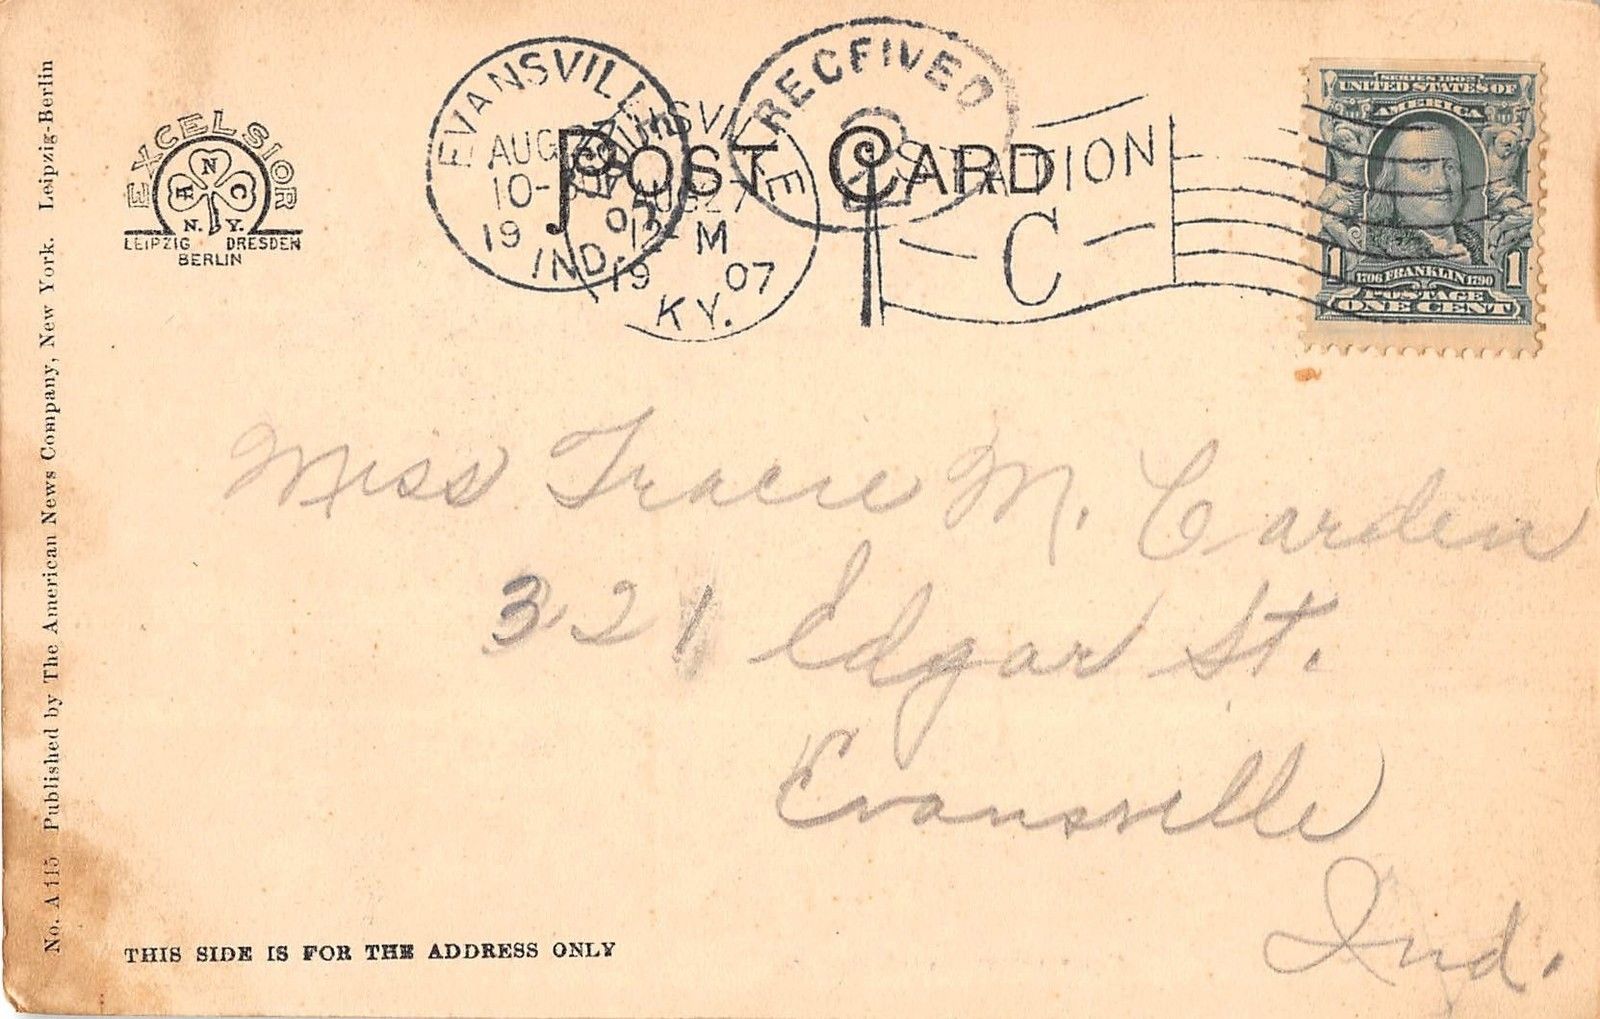 No. A 115 Published by The American News Company, New York. Leipzig-Berlin
EXCELSIOR
A N C
N. Y.
LEIPZIG DRESDEN
BERLIN
POST CARD
EVANSVILLE
AUG
10-
19 07
IND.
LOUISVILLE
AUG 27
M
19 07
KY.
RECEIVED
STATION
C
SERIES 1902
UNITED STATES OF
AMERICA
1 1706 FRANKLIN 1790 1
POSTAGE
ONE CENT
Miss Tracie M. Carden
321 Edgar St.
Evansville
Ind.
THIS SIDE IS FOR THE ADDRESS ONLY